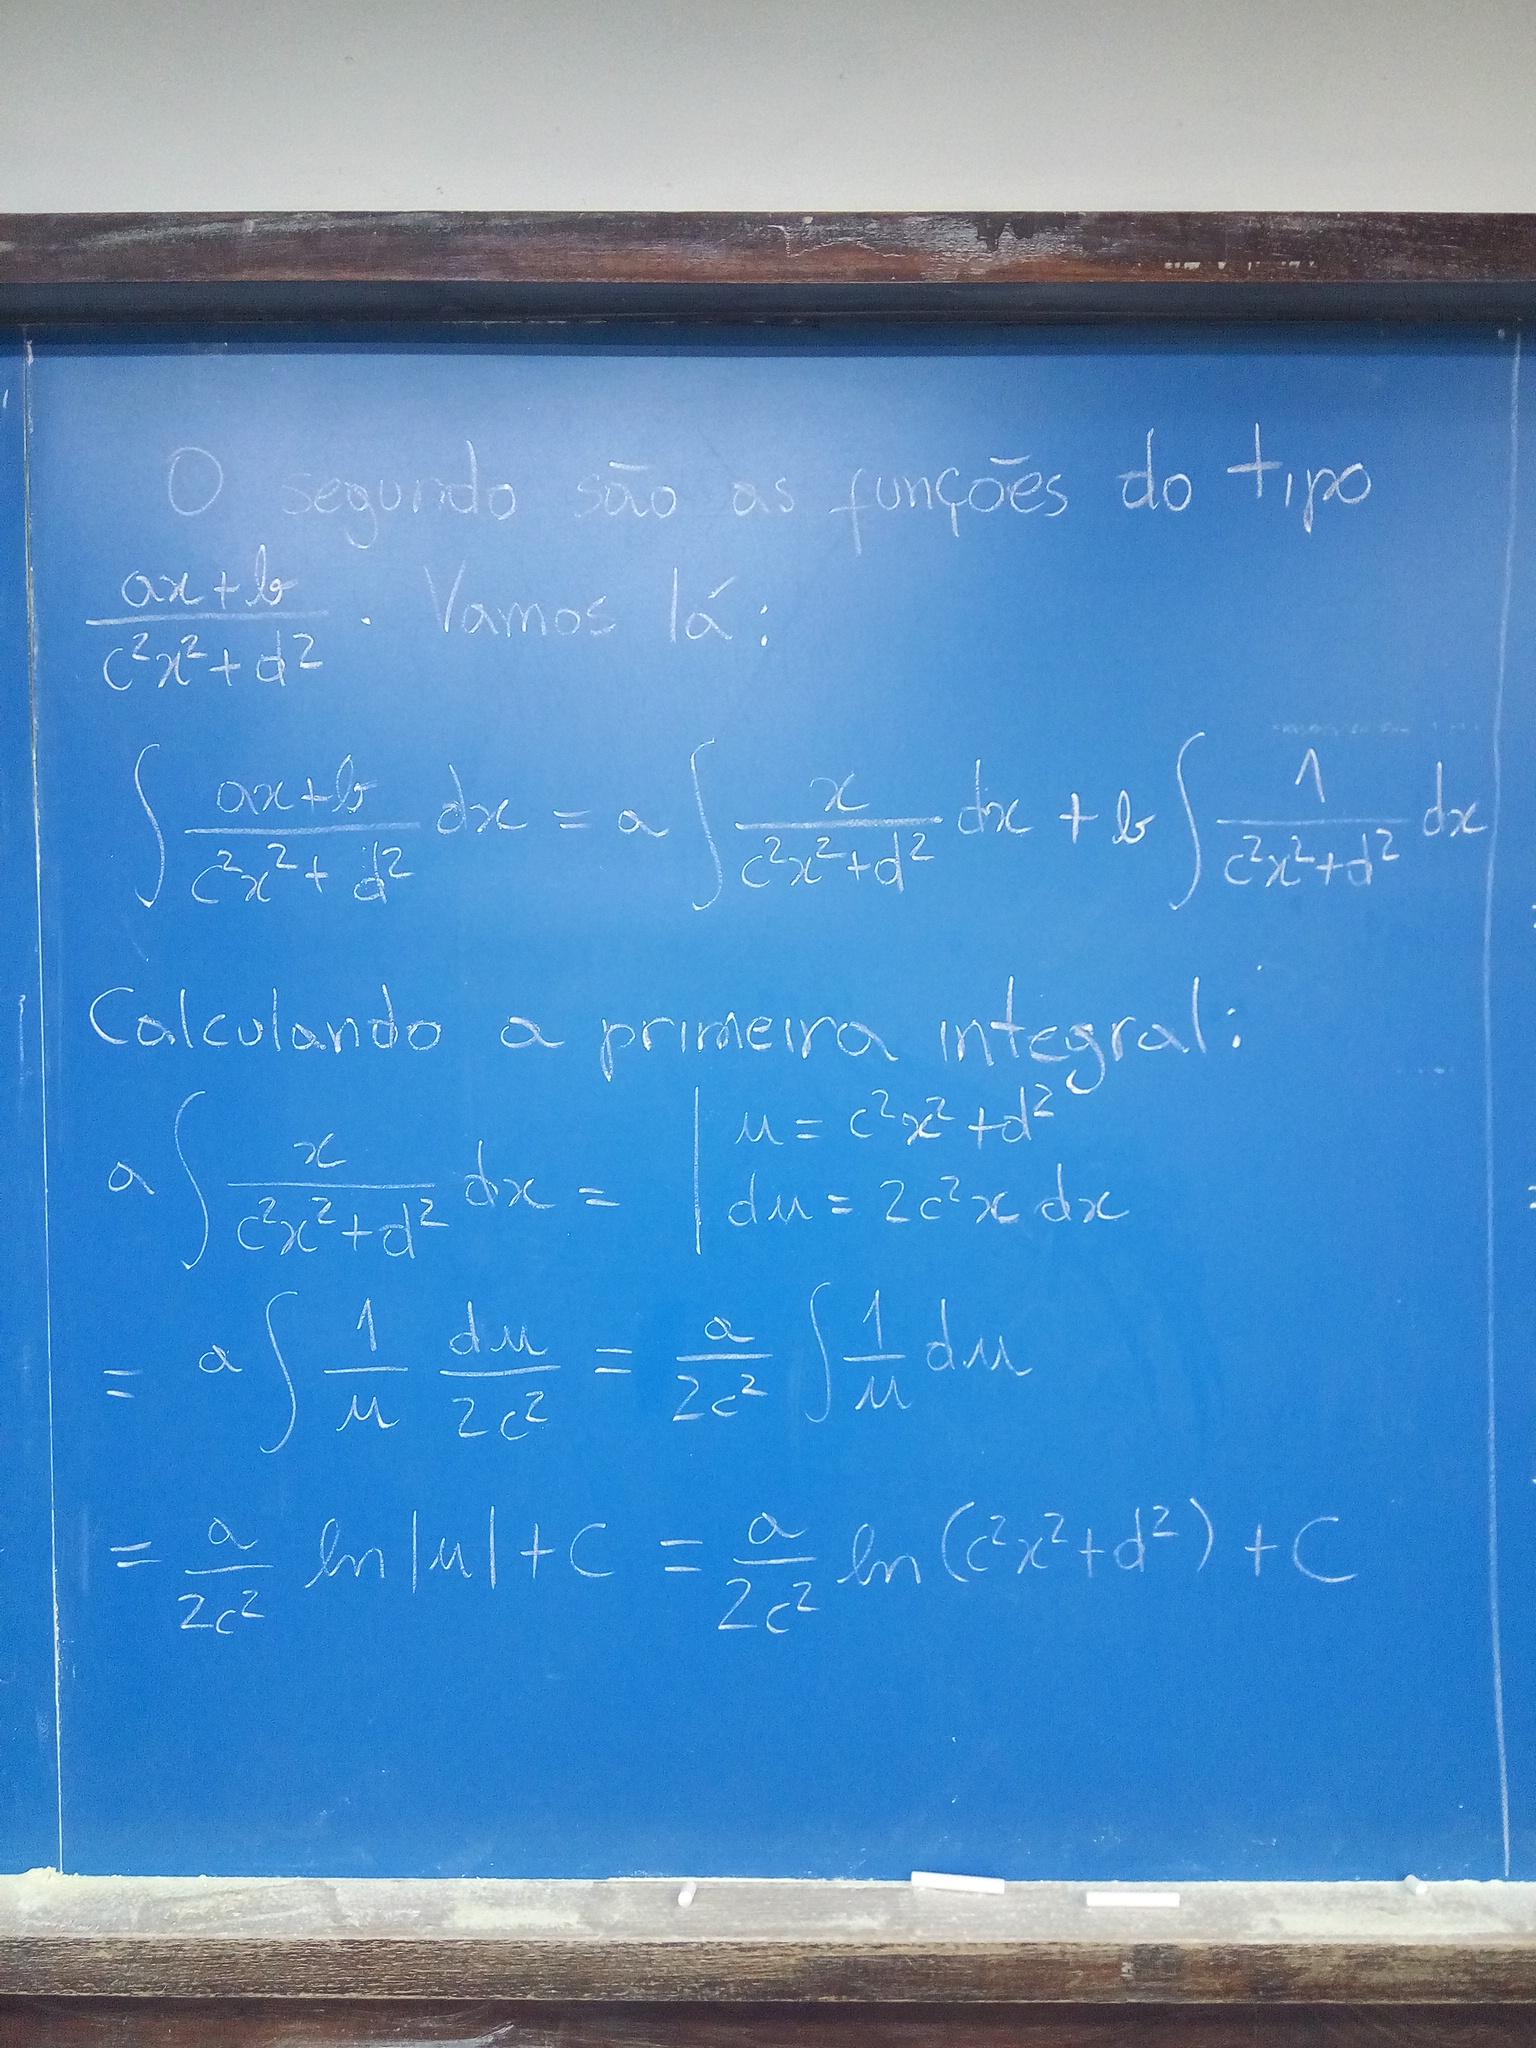 O segundo são as funções do tipo
(ax+b)/(c²x²+d²). Vamos lá:
∫ (ax+b)/(c²x²+d²) dx = a ∫ x/(c²x²+d²) dx + b ∫ 1/(c²x²+d²) dx
Calculando a primeira integral:
a ∫ x/(c²x²+d²) dx = | u = c²x²+d²
| du = 2c²x dx
= a ∫ 1/u du/2c² = a/2c² ∫ 1/u du
= a/2c² ln|u| + C = a/2c² ln(c²x²+d²) + C